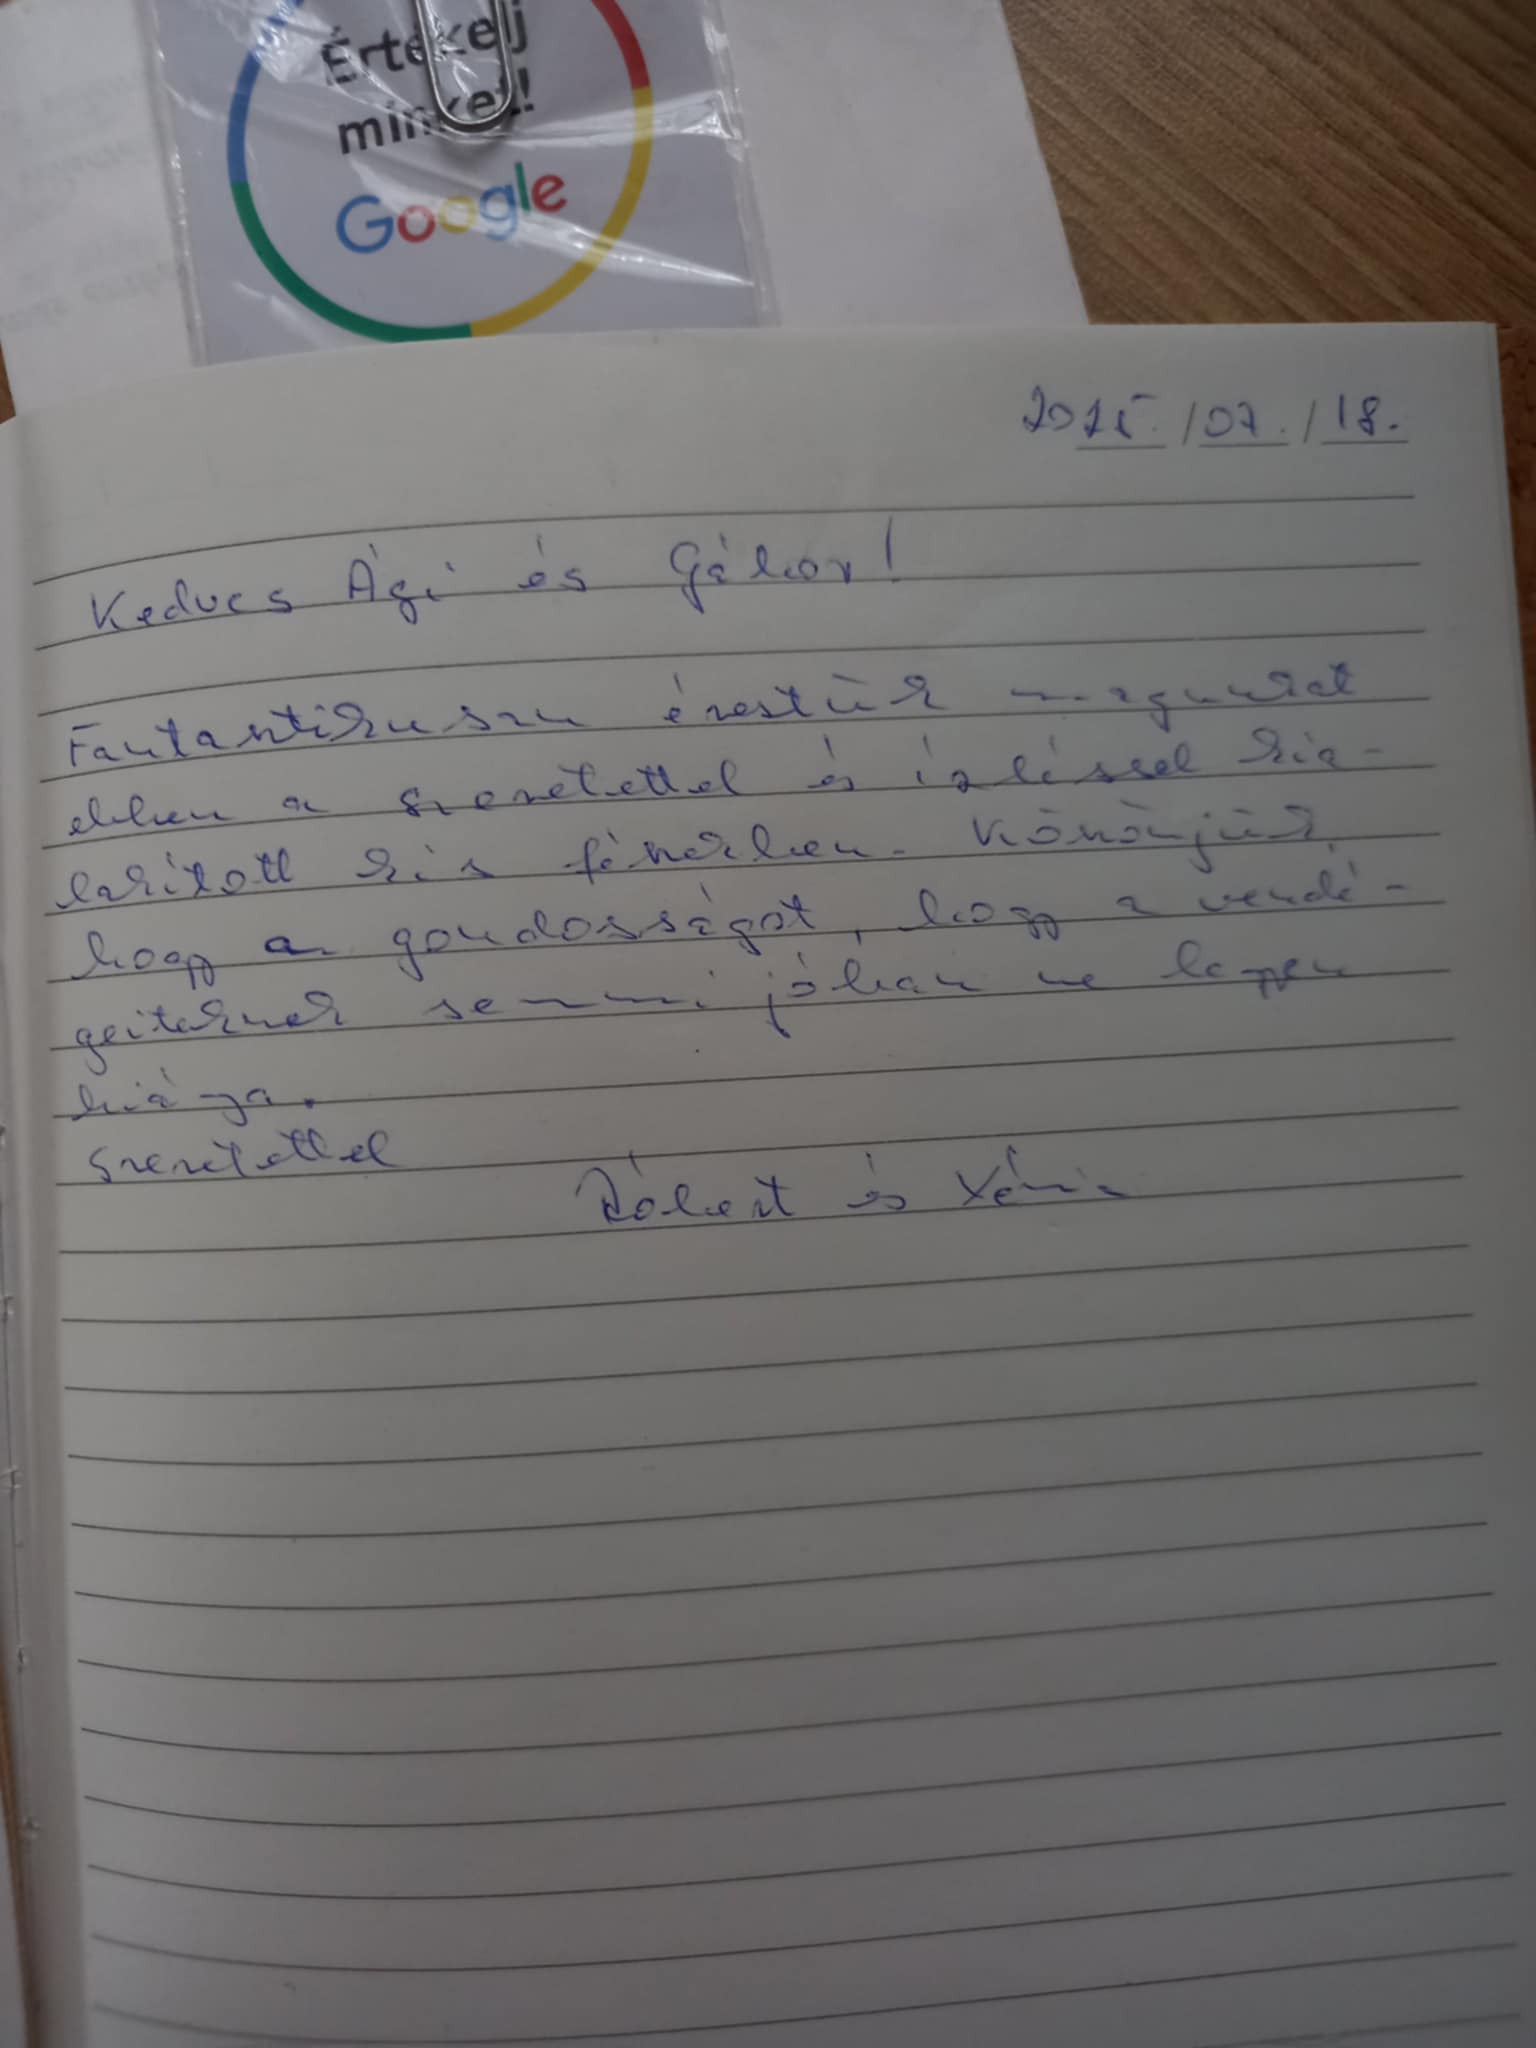 Értékelj
minket!
Google
2025. / 07. / 18.
Kedves Ági és Gábor!
Fantasztikusan éreztük magunkat
ebben a szeretettel és ízléssel kia-
lakított kis fészekben. Köszönjük
hogy a gondosságot, hogy a vendé-
geiteknek semmi jóban ne legyen
hiánya.
Szeretettel
Róbert és Xénia